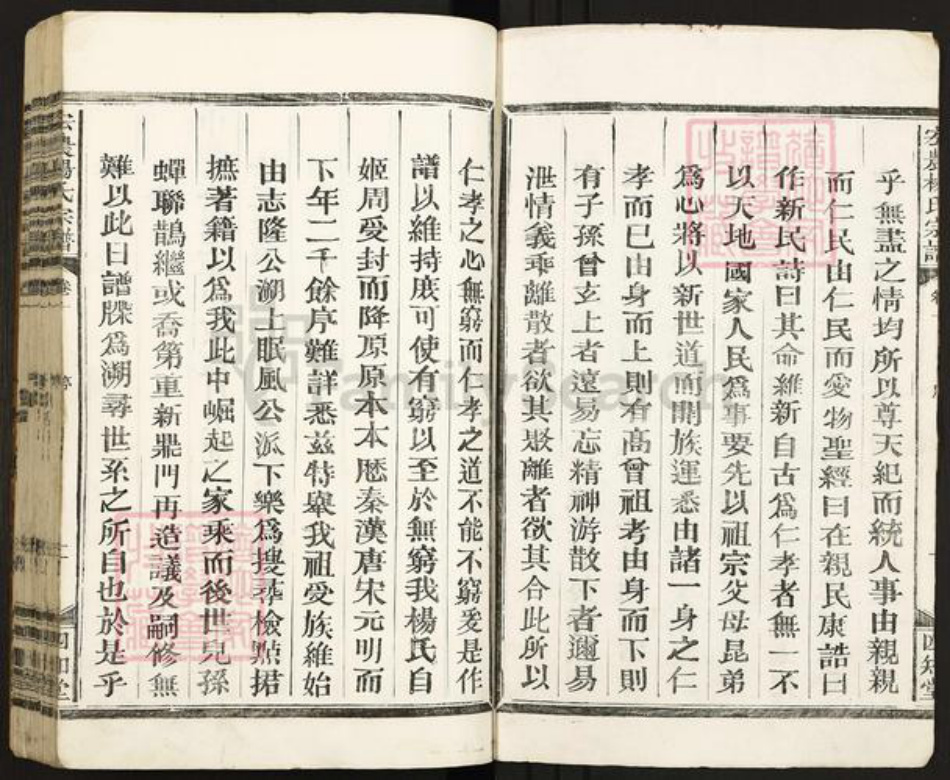 乎無盡之情均所以尊天紀而統人事由親親
而仁民由仁民而愛物聖經曰在親民康誥曰
作新民詩曰其命維新自古爲仁孝者無一不
以天地國家人民爲事要先以祖宗父母昆弟
爲心將以新世道而開族運悉由諸一身之仁
孝而已由身而上則有高曾祖考由身而下則
有子孫曾玄上者遠易忘精神游散下者邇易
泄情義乖離散者欲其聚離者欲其合此所以
仁孝之心無窮而仁孝之道不能不窮爰是作
譜以維持庶可使有窮以至於無窮我楊氏自
姬周受封而降原原本本歷秦漢唐宋元明而
下年二千餘序難詳悉茲特舉我祖受族維始
由志隆公溯上眠風公派下樂爲搜尋檢點捃
摭著籍以爲我此中崛起之家乘而後世兒孫
蟬聯鵲繼或喬第重新鼎門再造議及嗣修無
難以此曰譜牒爲溯尋世系之所自也於是乎
宏農楊氏宗譜
卷一
序
四知堂
FamilySearch